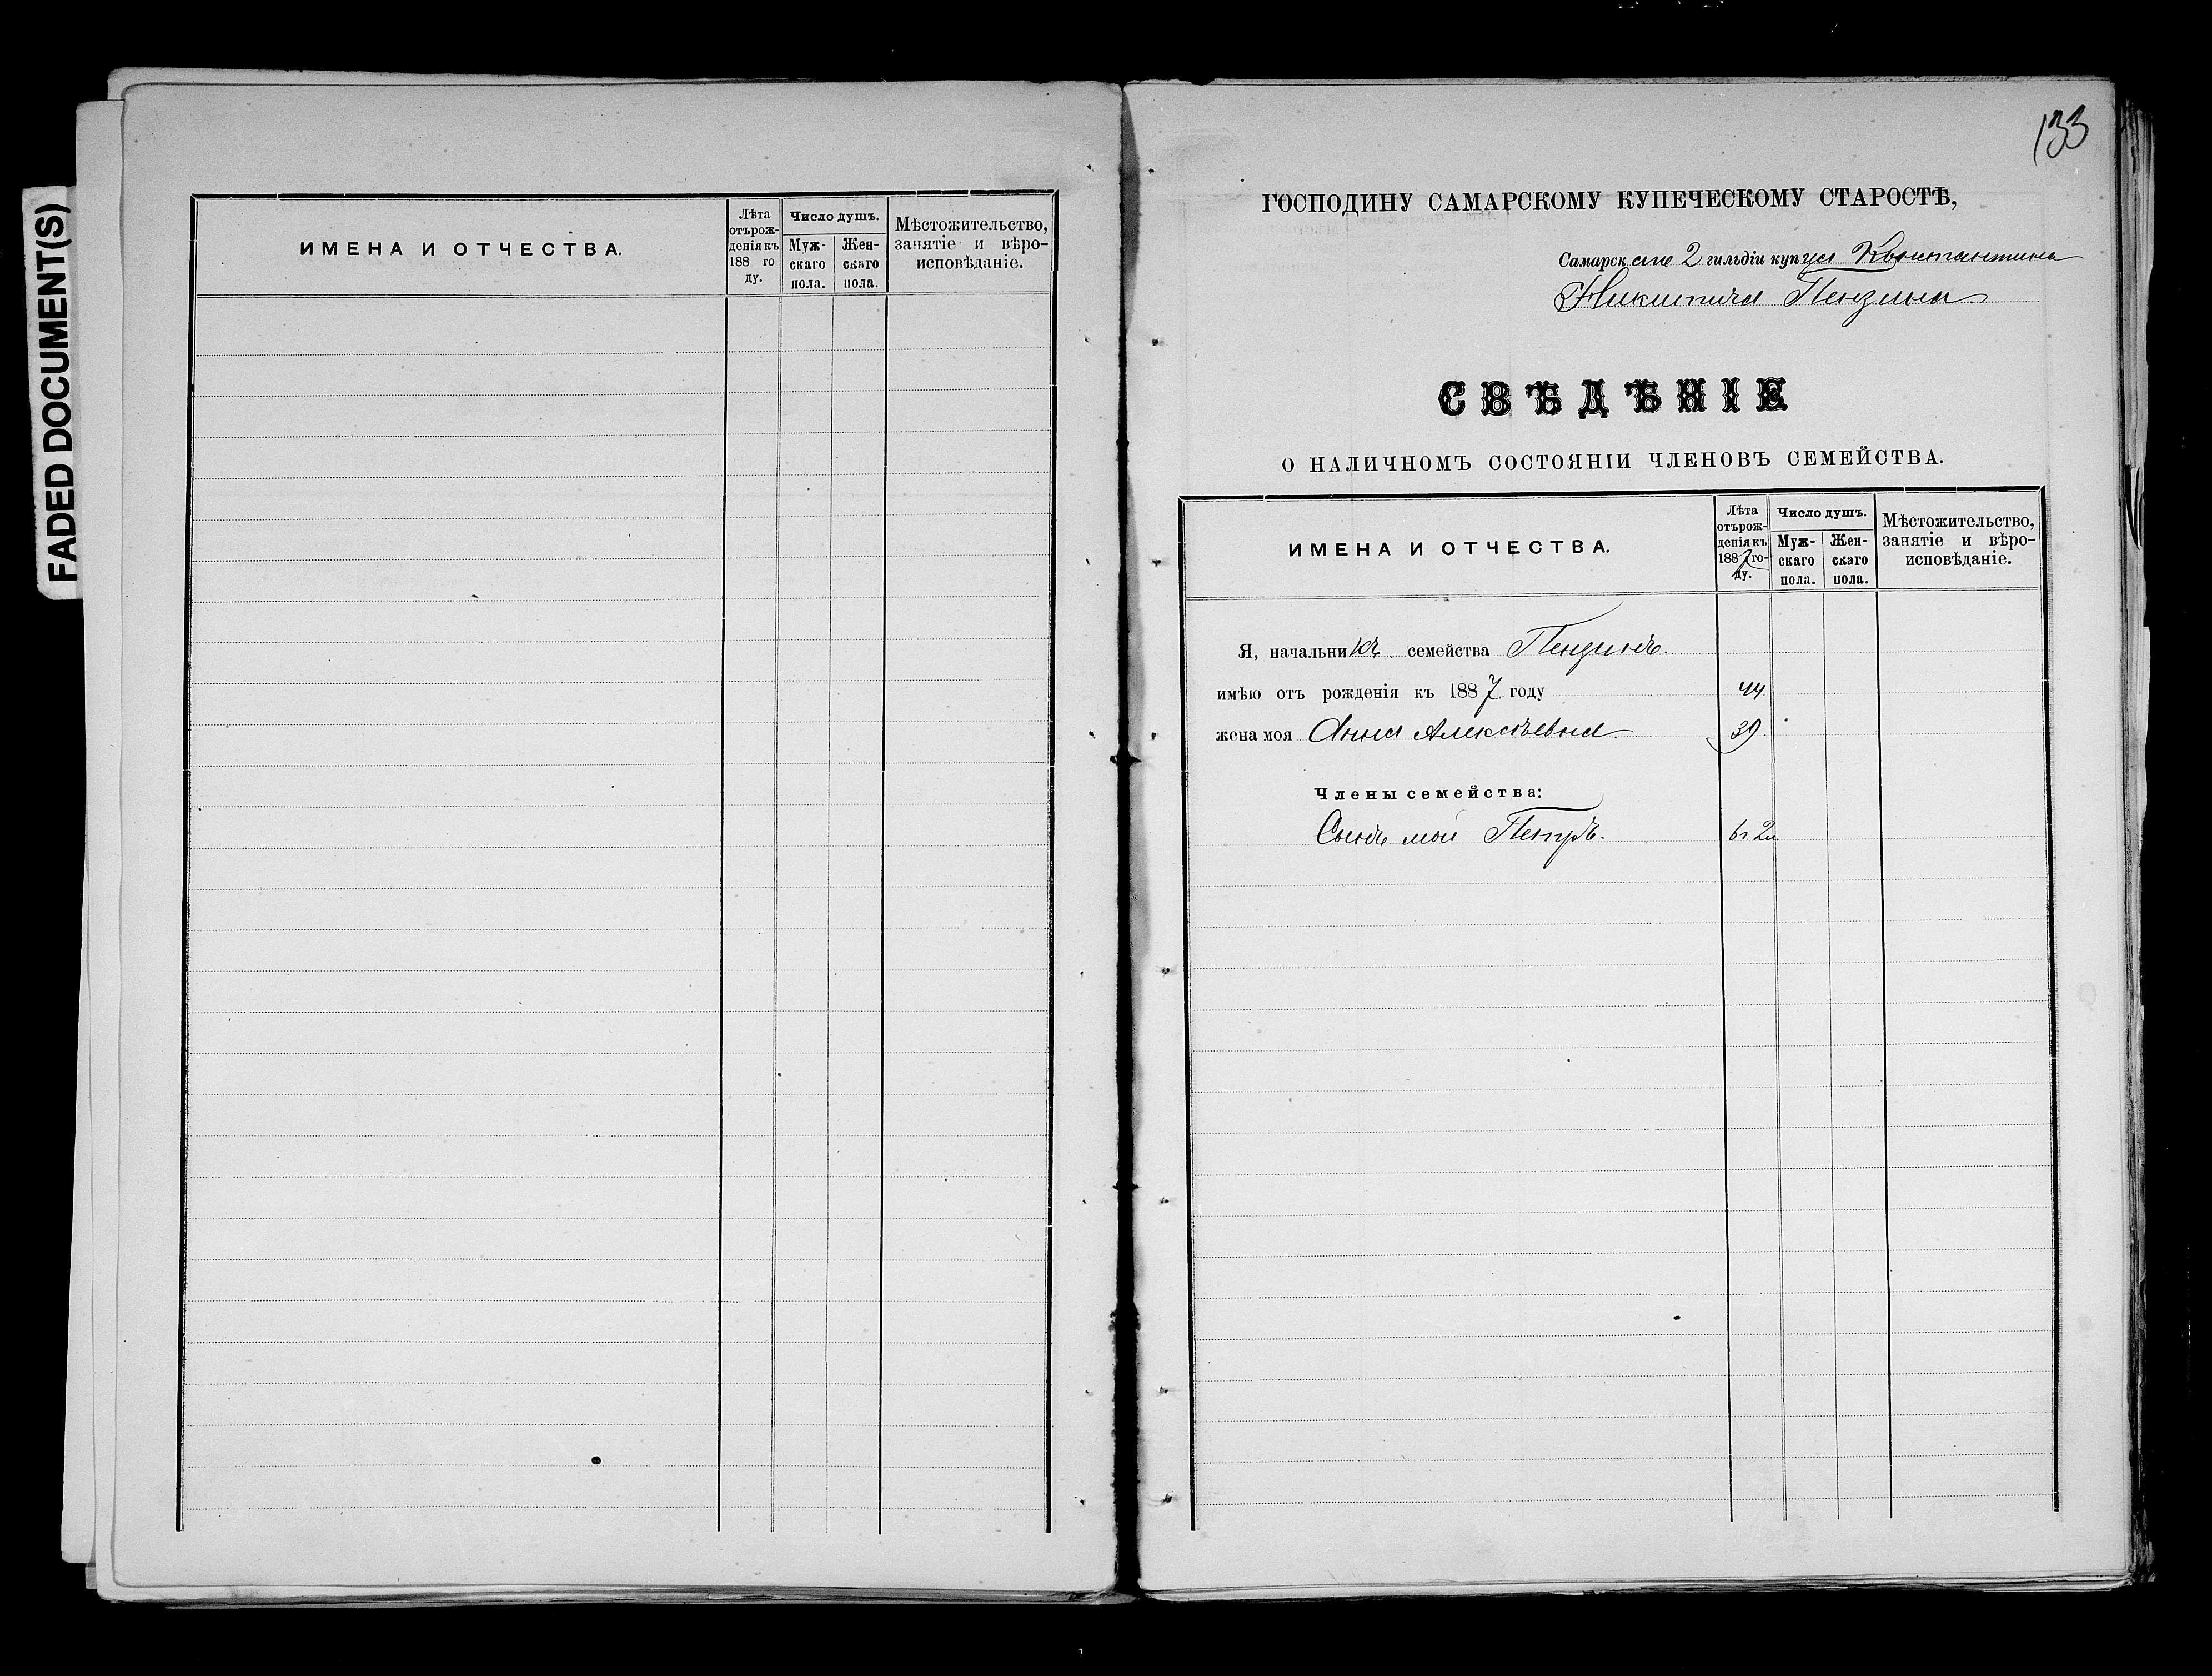 FADED DOCUMENT(S)
ИМЕНА И ОТЧЕСТВА.
Лѣта отърожденія къ 188 го ду.
Число душъ.
Мужскаго пола.
Женскаго пола.
Мѣстожительство, занятіе и вѣроисповѣданіе.
133
ГОСПОДИНУ САМАРСКОМУ КУПЕЧЕСКОМУ СТАРОСТѢ,
Самарскаго 2 гильдіи купца Константина
Никитича Пензина
СВѢДѢНІЕ
О НАЛИЧНОМЪ СОСТОЯНІИ ЧЛЕНОВЪ СЕМЕЙСТВА.
ИМЕНА И ОТЧЕСТВА.
Лѣта отърожденія къ 1887 году.
Число душъ.
Мужскаго пола.
Женскаго пола.
Мѣстожительство, занятіе и вѣроисповѣданіе.
Я, начальникъ семейства Пензинъ.
имѣю отъ рожденія къ 1887 году 44
жена моя Анна Алексѣевна 39.
Члены семейства:
Сынъ мой Петръ.